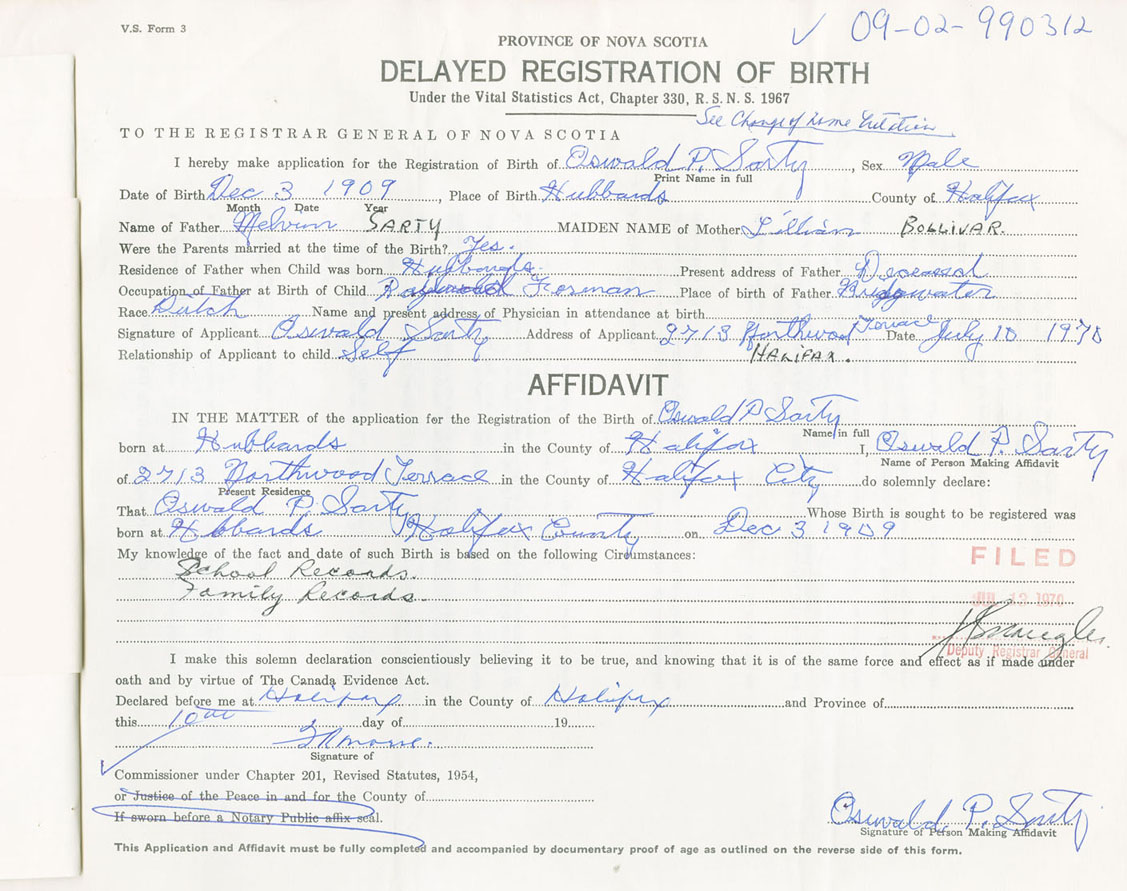 V.S. Form 3
✓ 09-02-990312
PROVINCE OF NOVA SCOTIA
DELAYED REGISTRATION OF BIRTH
Under the Vital Statistics Act, Chapter 330, R.S.N.S. 1967
See Change of Name
TO THE REGISTRAR GENERAL OF NOVA SCOTIA
I hereby make application for the Registration of Birth of Oswald P. Sarty, Sex Male
Print Name in full
Date of Birth Dec 3 1909, Place of Birth Hubbards County of Halifax
Month Date Year
Name of Father Melvin SARTY MAIDEN NAME of Mother Lillian BOLLIVAR.
Were the Parents married at the time of the Birth? Yes.
Residence of Father when Child was born Hubbards. Present address of Father Deceased
Occupation of Father at Birth of Child Forman Place of birth of Father Bridgwater
Race Dutch Name and present address of Physician in attendance at birth
Signature of Applicant Oswald Sarty Address of Applicant 2713 Northwood Terrace Date July 10 1970
Relationship of Applicant to child Self HALIFAX.
AFFIDAVIT
IN THE MATTER of the application for the Registration of the Birth of Oswald P Sarty
Name in full
born at Hubbards in the County of Halifax I, Oswald P. Sarty
Name of Person Making Affidavit
of 2713 Northwood Terrace in the County of Halifax City do solemnly declare:
Present Residence
That Oswald P. Sarty Whose Birth is sought to be registered was
born at Hubbards Halifax County on Dec 3 1909
My knowledge of the fact and date of such Birth is based on the following Circumstances:
School Records.
Family Records.
FILED
JUL 13 1970
Deputy Registrar General
I make this solemn declaration conscientiously believing it to be true, and knowing that it is of the same force and effect as if made under
oath and by virtue of The Canada Evidence Act.
Declared before me at Halifax in the County of Halifax and Province of
this 10th day of 19
Signature of
Commissioner under Chapter 201, Revised Statutes, 1954,
or Justice of the Peace in and for the County of
If sworn before a Notary Public affix seal.
Oswald P. Sarty
Signature of Person Making Affidavit
This Application and Affidavit must be fully completed and accompanied by documentary proof of age as outlined on the reverse side of this form.